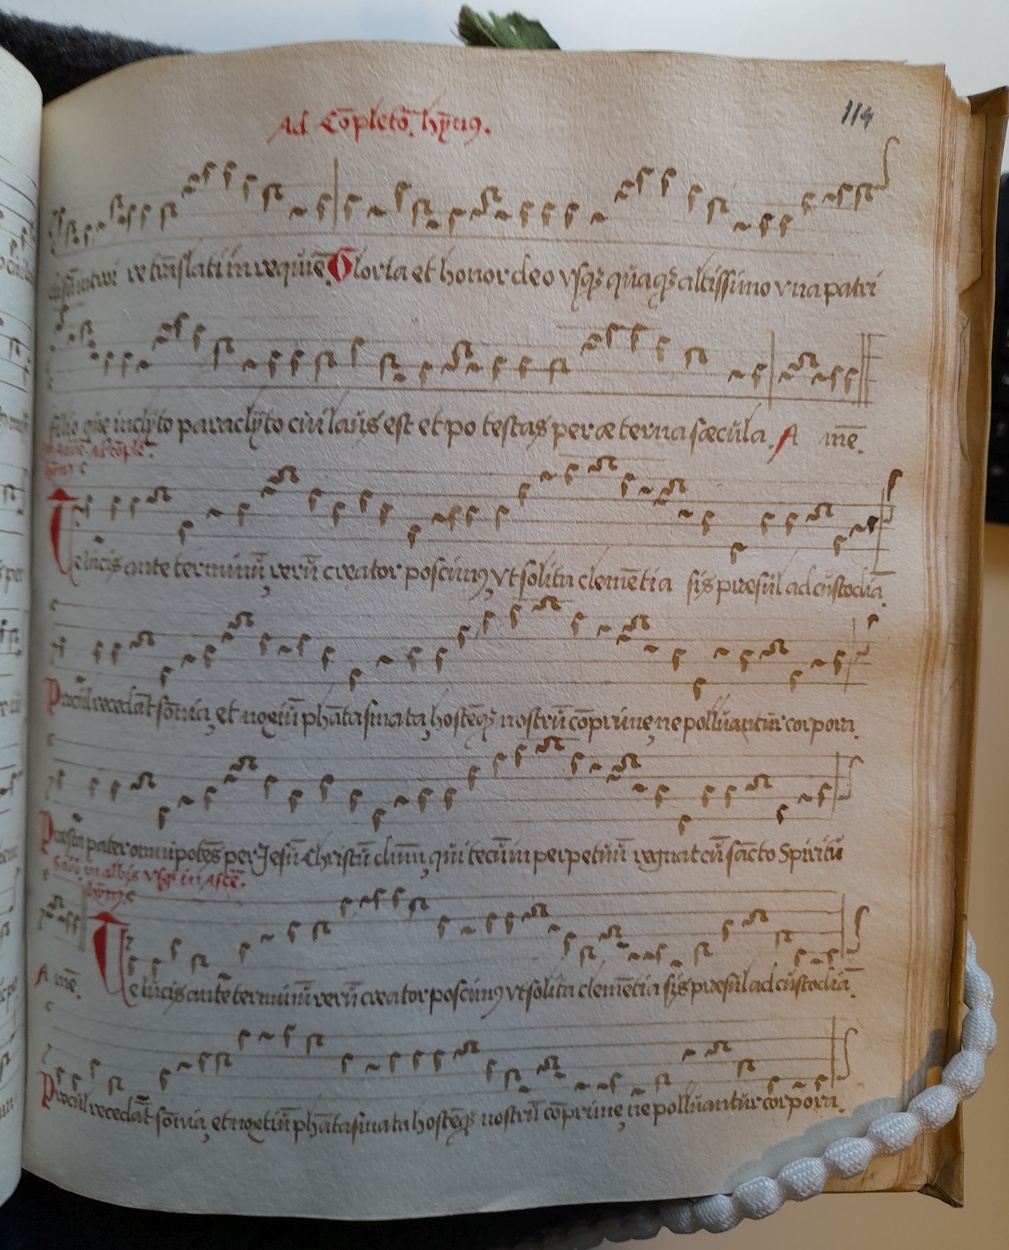 Ad Cōpletō. hȳn9.
114
re trāslati in requiē Gloria et honor deo vsq3 quaq3 altissimo vna patri
filio que inclyto paraclyto cui laus est et po testas per æ terna sæcula. A mē.
hȳn9
Te lucis ante terminū, rerū creator poscim9, vt solita clemētia sis præsul ad custodiā.
Procul recedāt sōnia, et noctiū phātasmata, hostēq3 nostrū cōprime, ne polluantur corpora.
Præsta pater omnipotēs per Jesū Christū dnm, qui tecū in perpetuū regnat cū sācto Spiritu
Sabb. in albis vsq3 in Ascē.
hȳn9
A mē. Te lucis ante terminū rerū creator poscim9 vt solita clemētia sis præsul ad custodiā.
Procul recedāt sōnia, et noctiū phātasmata hostēq3 nostrū cōprime, ne polluantur corpora.